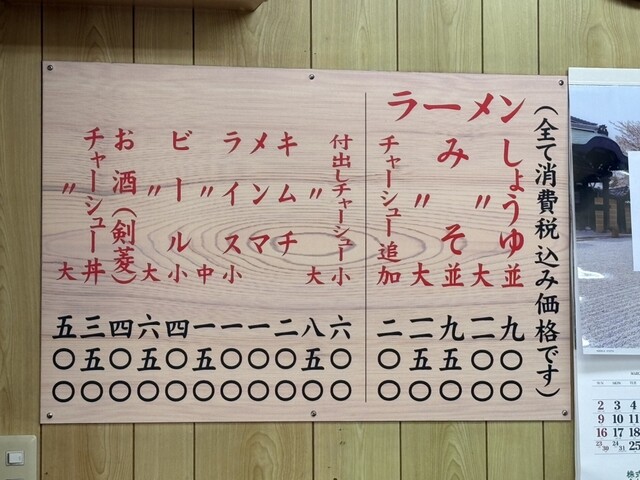 （全て消費税込み価格です）
ラーメン
しょうゆ並 九〇〇
〃 大 一二〇〇
みそ並 九五〇
〃 大 一二五〇
チャーシュー追加 二〇〇
付出しチャーシュー小 六〇〇
〃 大 八五〇
キムチ 二〇〇
メンマ 一〇〇
ライス小 一〇〇
〃 中 一五〇
ビール小 四〇〇
〃 大 六五〇
お酒（剣菱） 四〇〇
チャーシュー丼 三五〇
〃 大 五〇〇
2 3 4
9 10 11
16 17 18
23/30 24/31 25